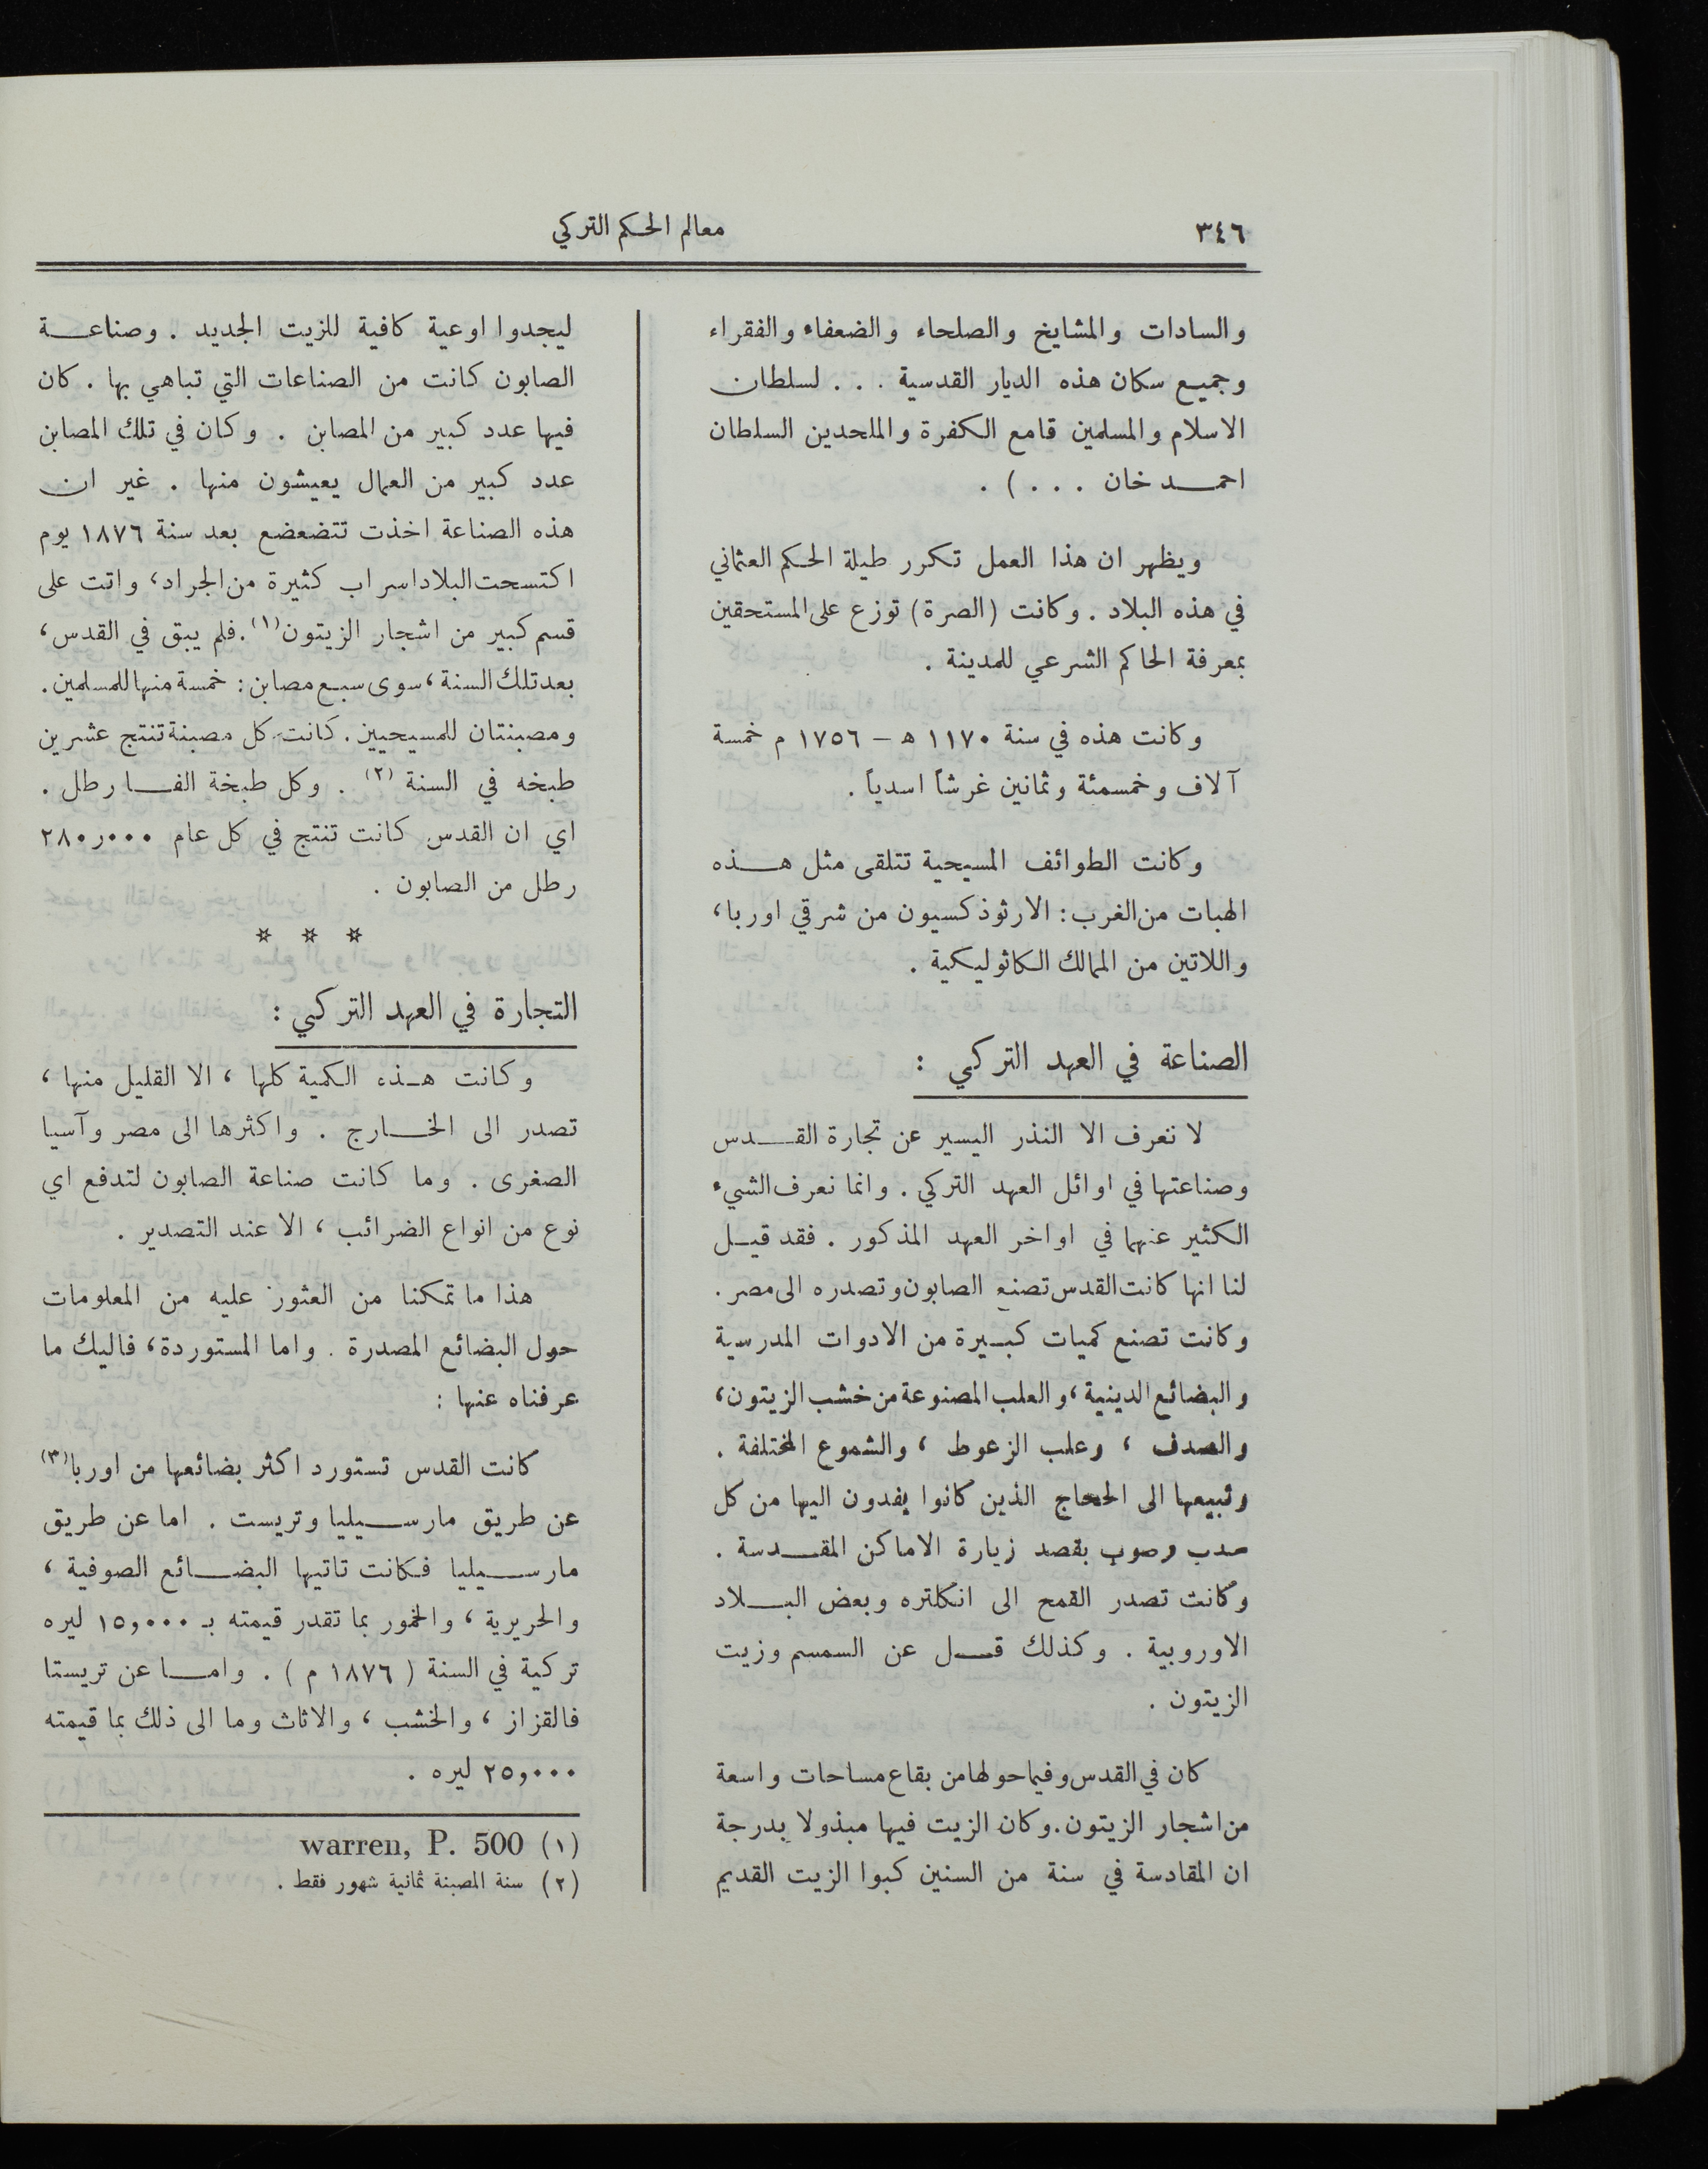 ٣٤٦
معالم الحكم التركي
والسادات والمشايخ والصلحاء والضعفاء والفقراء
وجميع سكان هذه الديار القدسية . . . لسلطان
الاسلام والمسلمين قامع الكفرة والملحدين السلطان
احمد خان . . . ) .
ويظهر ان هذا العمل تكرر طيلة الحكم العثماني
في هذه البلاد . وكانت (الصرة) توزع على المستحقين
بمعرفة الحاكم الشرعي للمدينة .
وكانت هذه في سنة ١١٧٠ ه – ١٧٥٦ م خمسة
آلاف وخمسمئة وثمانين غرشاً اسدياً .
وكانت الطوائف المسيحية تتلقى مثل هذه
الهبات من الغرب : الارثوذكسيون من شرقي اوربا ،
واللاتين من الممالك الكاثوليكية .
الصناعة في العهد التركي :
لا نعرف الا النذر اليسير عن تجارة القدس
وصناعتها في اوائل العهد التركي . وانما نعرف الشيء
الكثير عنهما في اواخر العهد المذكور . فقد قيل
لنا انها كانت القدس تصنع الصابون وتصدره الى مصر .
وكانت تصنع كميات كبيرة من الادوات المدرسية
والبضائع الدينية ، والعلب المصنوعة من خشب الزيتون ،
والصدف ، وعلب الزعوط ، والشموع المختلفة .
وتبيعها الى الحجاج الذين كانوا يفدون اليها من كل
حدب وصوب بقصد زيارة الاماكن المقدسة .
وكانت تصدر القمح الى انكلتره وبعض البلاد
الاوروبية . وكذلك قل عن السمسم وزيت
الزيتون .
كان في القدس وفيما حولها من بقاع مساحات واسعة
من اشجار الزيتون . وكان الزيت فيها مبذولا بدرجة
ان المقادسة في سنة من السنين كبوا الزيت القديم
ليجدوا اوعية كافية للزيت الجديد . وصناعة
الصابون كانت من الصناعات التي تباهي بها . كان
فيها عدد كبير من المصابن . وكان في تلك المصابن
عدد كبير من العمال يعيشون منها . غير ان
هذه الصناعة اخذت تتضعضع بعد سنة ١٨٧٦ يوم
اكتسحت البلاد اسراب كثيرة من الجراد ، واتت على
قسم كبير من اشجار الزيتون (١) . فلم يبق في القدس ،
بعد تلك السنة ، سوى سبع مصابن : خمسة منها للمسلمين .
ومصبنتان للمسيحيين . كانت كل مصبنة تنتج عشرين
طبخه في السنة (٢) . وكل طبخة الفا رطل .
اي ان القدس كانت تنتج في كل عام ٢٨٠ر٠٠٠
رطل من الصابون .
* * *
التجارة في العهد التركي :
وكانت هذه الكمية كلها ، الا القليل منها ،
تصدر الى الخارج . واكثرها الى مصر وآسيا
الصغرى . وما كانت صناعة الصابون لتدفع اي
نوع من انواع الضرائب ، الا عند التصدير .
هذا ما تمكنا من العثور عليه من المعلومات
حول البضائع المصدرة . واما المستوردة ، فاليك ما
عرفناه عنها :
كانت القدس تستورد اكثر بضائعها من اوربا (٣)
عن طريق مارسيليا وتريست . اما عن طريق
مارسيليا فكانت تاتيها البضائع الصوفية ،
والحريرية ، والخمور بما تقدر قيمته بـ ١٥,٠٠٠ ليره
تركية في السنة ( ١٨٧٦ م ) . واما عن تريستا
فالقزاز ، والخشب ، والاثاث وما الى ذلك بما قيمته
٢٥,٠٠٠ ليره .
(١) warren, P. 500
(٢) سنة المصبنة ثمانية شهور فقط .